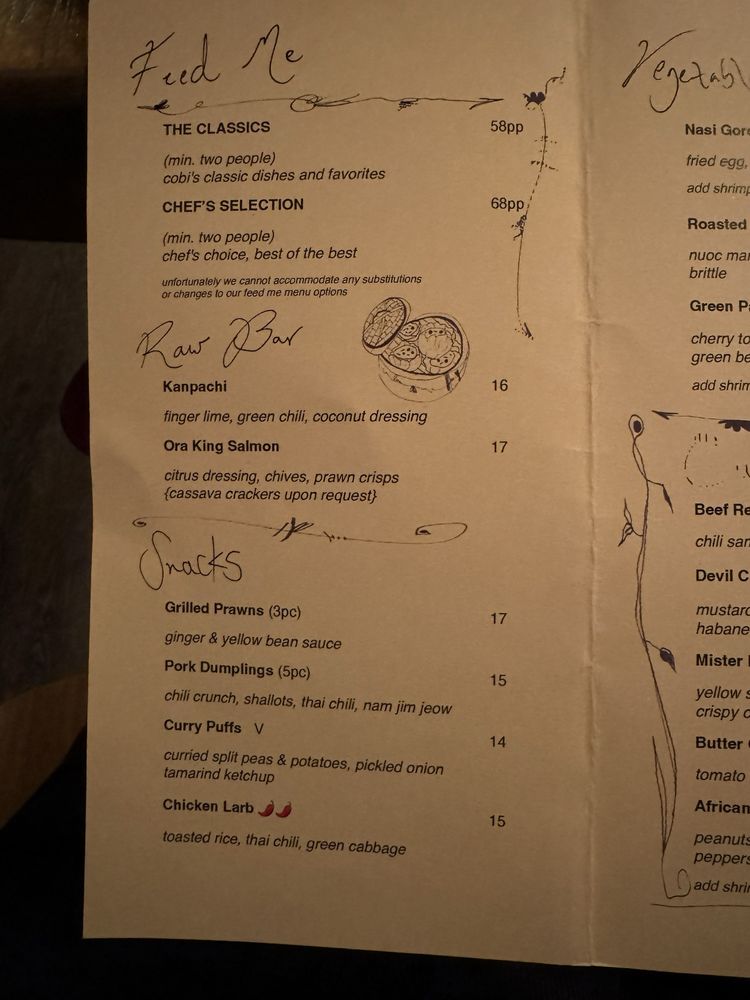 Feed Me
THE CLASSICS 58pp
(min. two people)
cobi's classic dishes and favorites
CHEF'S SELECTION 68pp
(min. two people)
chef's choice, best of the best
unfortunately we cannot accommodate any substitutions
or changes to our feed me menu options
Raw Bar
Kanpachi 16
finger lime, green chili, coconut dressing
Ora King Salmon 17
citrus dressing, chives, prawn crisps
{cassava crackers upon request}
Snacks
Grilled Prawns (3pc) 17
ginger & yellow bean sauce
Pork Dumplings (5pc) 15
chili crunch, shallots, thai chili, nam jim jeow
Curry Puffs V 14
curried split peas & potatoes, pickled onion
tamarind ketchup
Chicken Larb 🌶️🌶️ 15
toasted rice, thai chili, green cabbage
Vegetabl
Nasi Gor
fried egg,
add shrimp
Roasted
nuoc ma
brittle
Green P
cherry to
green be
add shrim
Beef Re
chili sa
Devil C
mustar
habane
Mister
yellow s
crispy c
Butter
tomato
African
peanuts
peppers
add shri